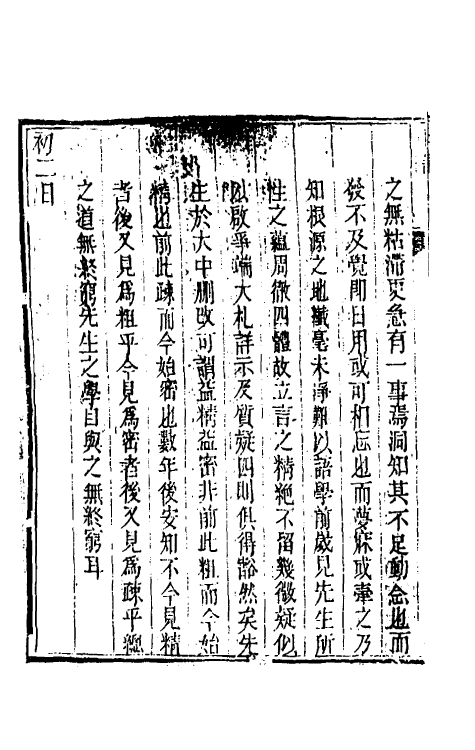 之無粘滯更急有一事焉洞知其不足動念也而
發不及覺卽日用或可相忘也而夢寐或牽之乃
知根源之地纖毫未淨難以語學前歲見先生所
性之蘊周徹四體故立言之精絕不留幾微疑似
以啟爭端大札詳示及質疑四則俱得豁然矣先
生於大中刪改可謂益精益密非前此粗而今始
精也前此疎而今始密也數年後安知不今見精
者後又見爲粗乎今見爲密者後又見爲疎乎總
之道無終窮先生之學自與之無終窮耳
初二日